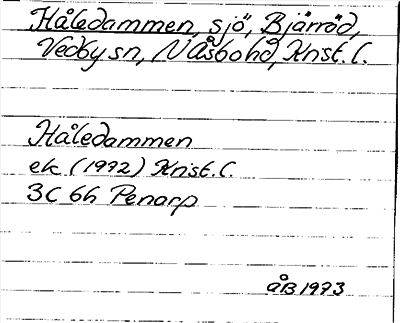 Håledammen, sjö, Bjärröd,
Vedby sn, N Åsbo hd, Krist. l.
Håledammen
ek (1992) Krist. l.
3C 6h Penarp
ÅB 1973